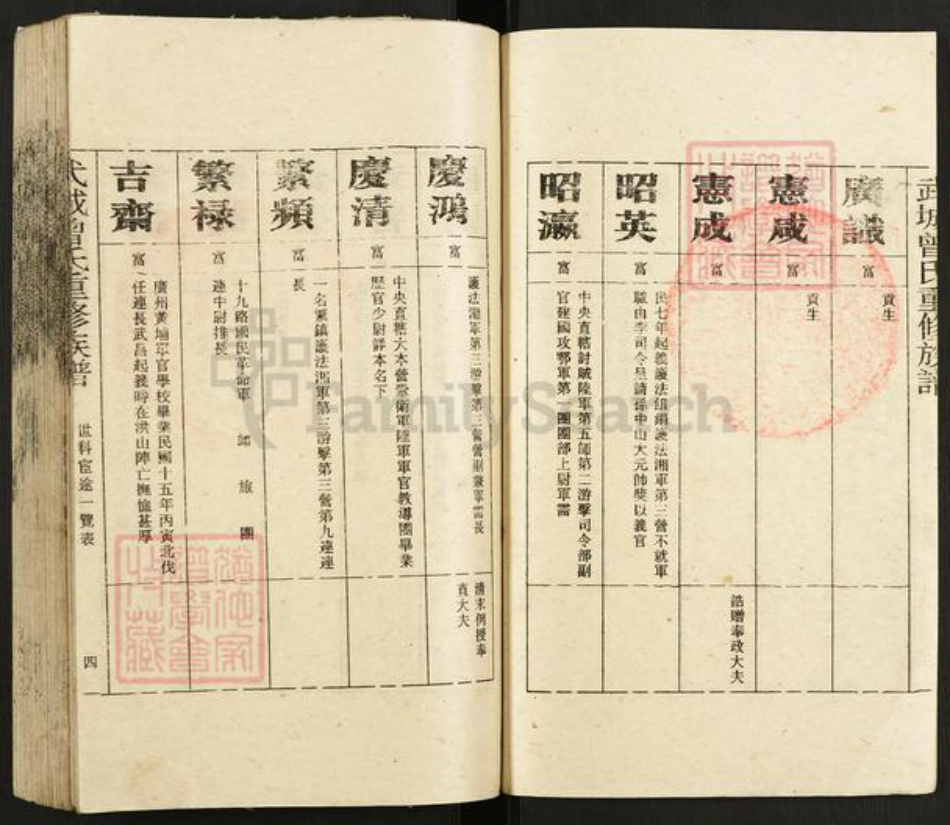 武城曾氏重修族譜
廣識
富
貢生
憲咸
富
貢生
憲成
富
誥贈奉政大夫
昭英
富
民七年起義護法組織護法湘軍第三營不就軍
職由李司令呈請孫中山大元帥獎以義官
昭瀛
富
中央直轄討賊陸軍第五師第二游擊司令部副
官建國攻鄂軍第 團團部上尉軍需
慶鴻
富
護法湘軍第三游擊第三營副兼軍需長
清末例授奉
直大夫
慶清
富
中央直轄大本營警衛軍陸軍軍官教導團畢業
歷官少尉詳本名下
繁頻
富
一名黨鎮護法湘軍第三游擊第三營第九連連
長
繁祿
富
十九路國民革命軍 師 旅 團
連中尉排長
吉齋
富
廣州黃埔軍官學校畢業民國十五年丙寅北伐
任連長武昌起義時在洪山陣亡撫恤甚厚
武城曾氏重修族譜
世科宦途一覽表
四
FamilySearch